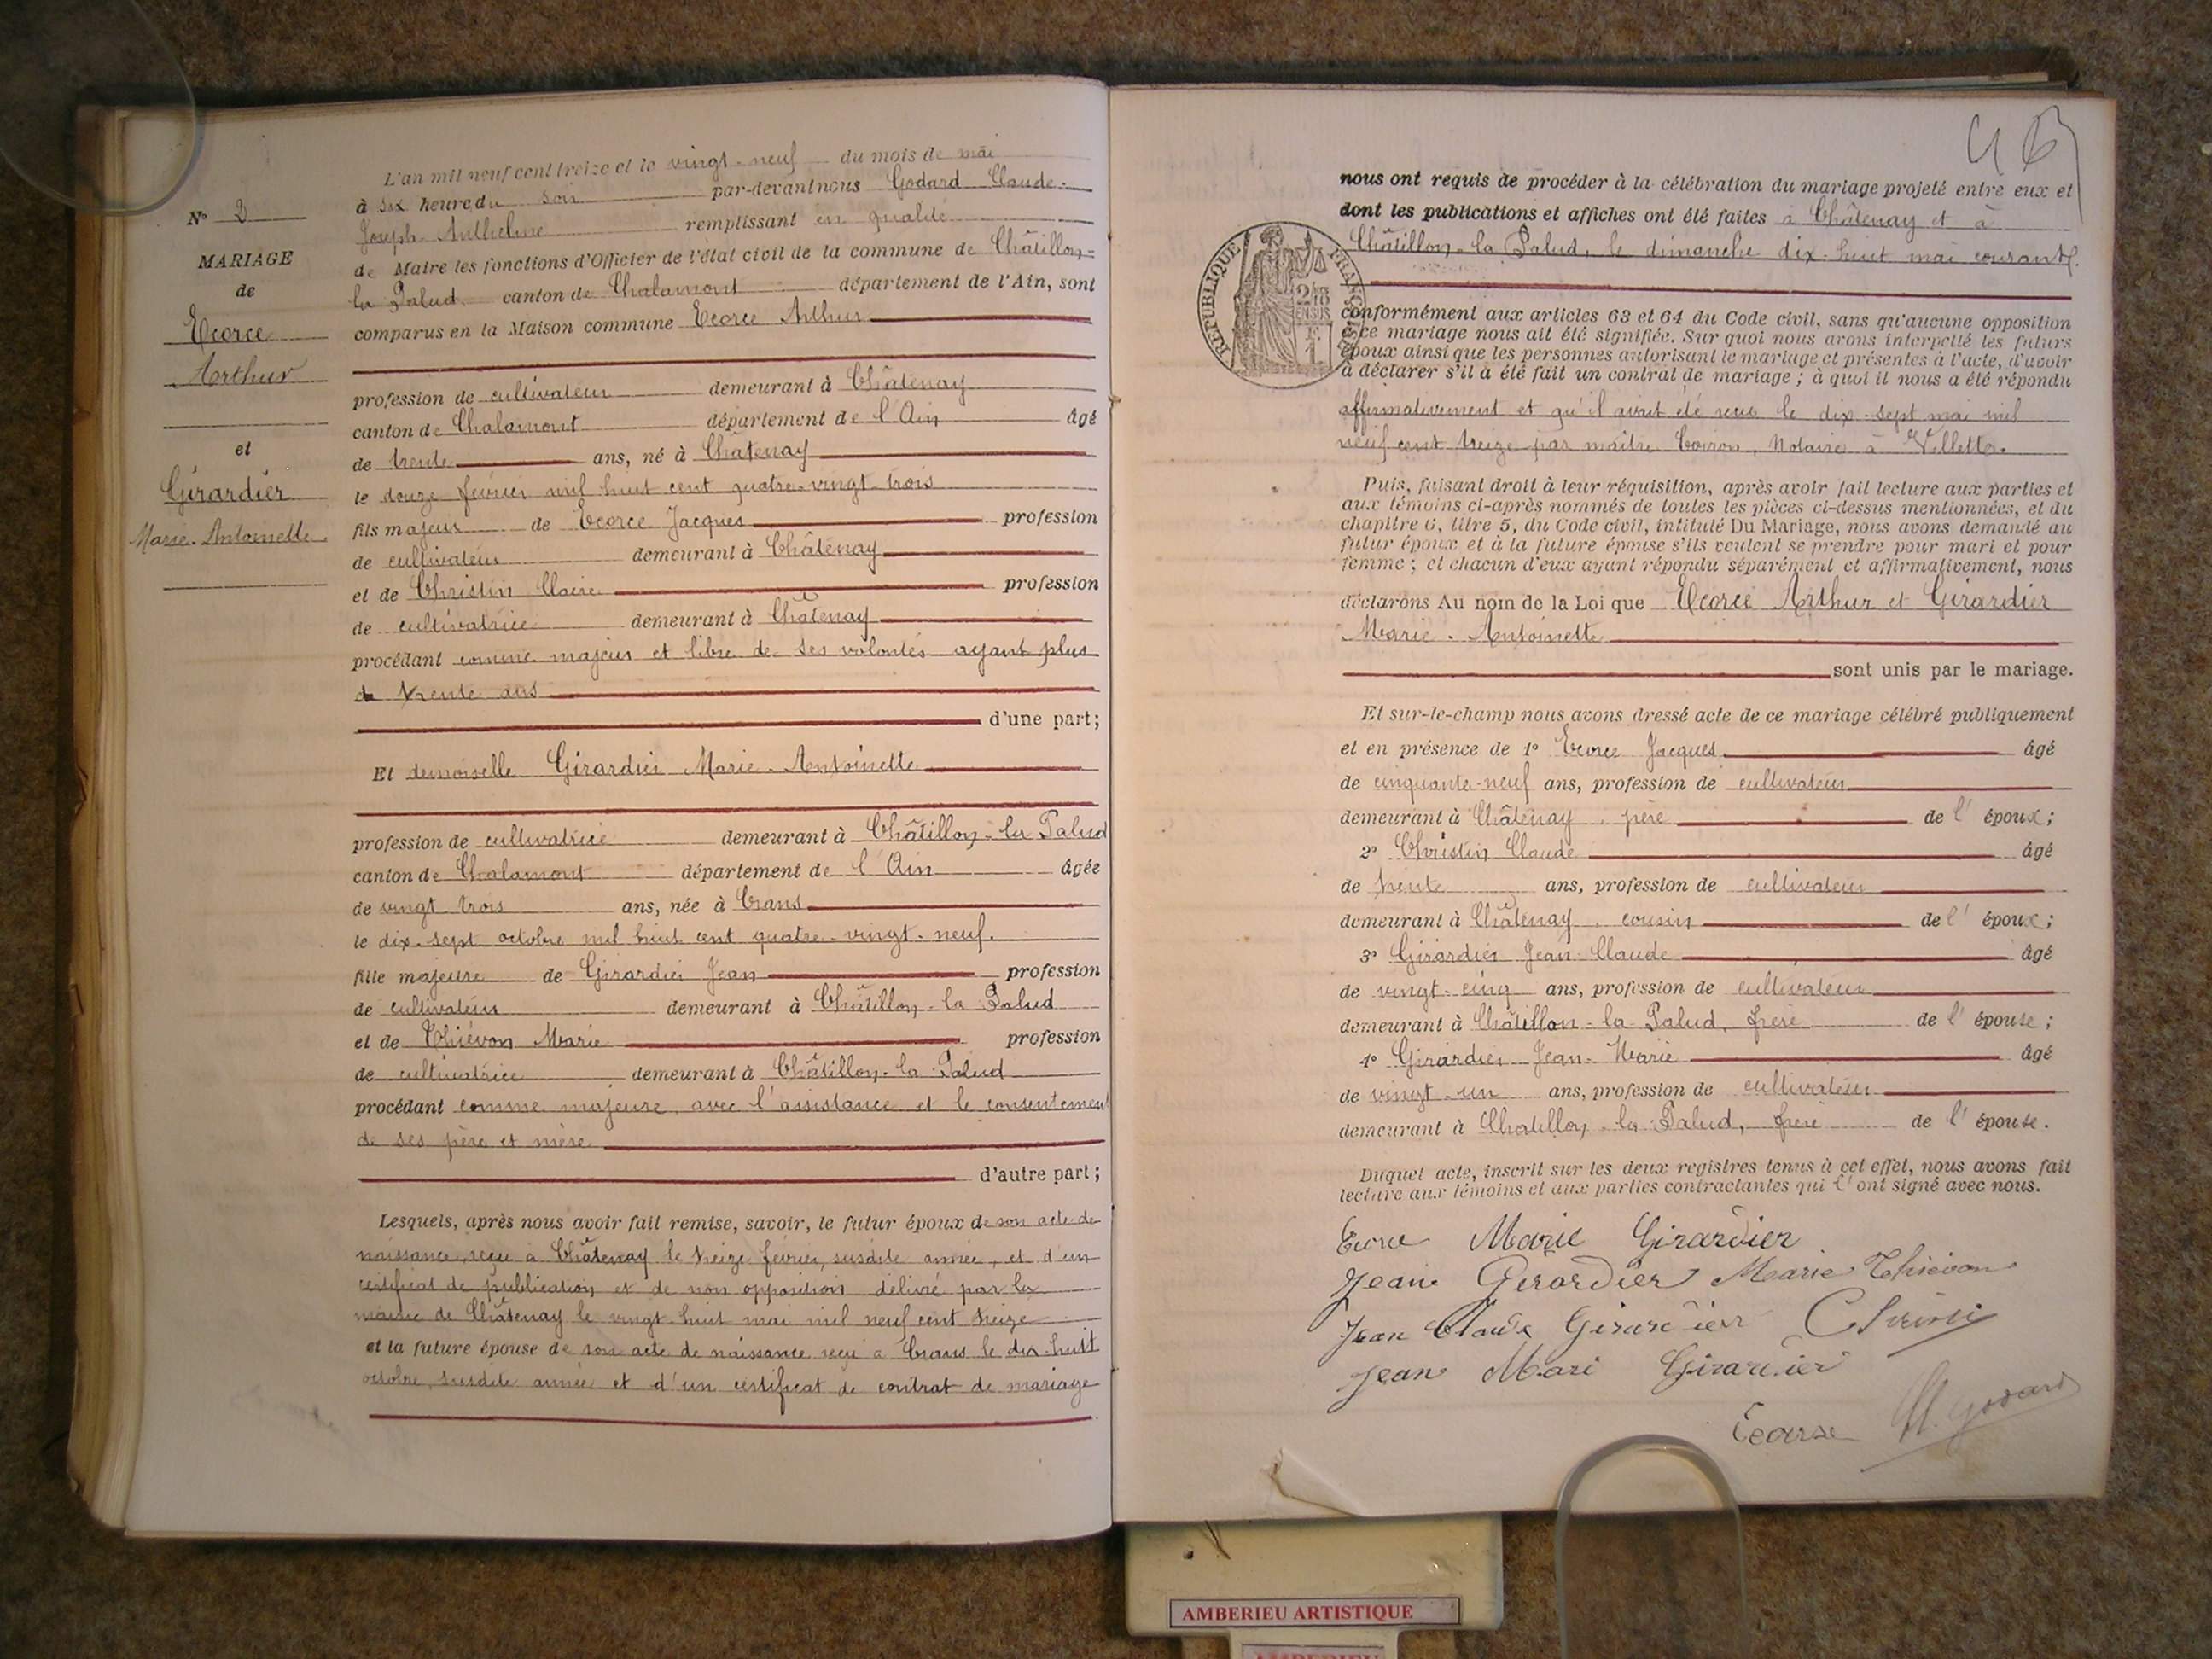 L'an mil neuf cent treize et le vingt-neuf du mois de mai
à six heure du soir par-devant nous Godard Claude-
Joseph-Anthelme remplissant en qualité
de Maire les fonctions d'Officier de l'état civil de la commune de Châtillon-
la Palud canton de Chalamont département de l'Ain, sont
comparus en la Maison commune Ecorce Arthur
N° 2
MARIAGE
de
Ecorce
Arthur
et
Girardier
Marie-Antoinette
profession de cultivateur demeurant à Châtenay
canton de Chalamont département de l'Ain âgé
de trente ans, né à Châtenay
le douze février mil huit cent quatre-vingt-trois
fils majeur de Ecorce Jacques profession
de cultivateur demeurant à Châtenay
et de Christin Claire profession
de cultivatrice demeurant à Châtenay
procédant comme majeur et libre de ses volontés ayant plus
de trente ans
d'une part;
Et demoiselle Girardier Marie-Antoinette
profession de cultivatrice demeurant à Châtillon-la Palud
canton de Chalamont département de l'Ain âgée
de vingt trois ans, née à Crans
le dix-sept octobre mil huit cent quatre-vingt-neuf.
fille majeure de Girardier Jean profession
de cultivateur demeurant à Châtillon-la Palud
et de Thiévon Marie profession
de cultivatrice demeurant à Châtillon-la Palud
procédant comme majeure, avec l'assistance et le consentement
de ses père et mère
d'autre part;
Lesquels, après nous avoir fait remise, savoir, le futur époux de son acte de
naissance, reçu à Châtenay le treize février, susdite année, et d'un
certificat de publication et de non opposition délivré par la
mairie de Châtenay le vingt-huit mai mil neuf cent treize
et la future épouse de son acte de naissance reçu à Crans le dix-huit
octobre, susdite année et d'un certificat de contrat de mariage
nous ont requis de procéder à la célébration du mariage projeté entre eux et
dont les publications et affiches ont été faites à Châtenay et à
Châtillon-la Palud, le dimanche dix-huit mai courant.
REPUBLIQUE FRANÇAISE
conformément aux articles 63 et 64 du Code civil, sans qu'aucune opposition
à ce mariage nous ait été signifiée. Sur quoi nous avons interpellé les futurs
époux ainsi que les personnes autorisant le mariage et présentes à l'acte, d'avoir
à déclarer s'il a été fait un contrat de mariage; à quoi il nous a été répondu
affirmativement et qu'il avait été reçu le dix-sept mai mil
neuf cent treize par maître Coiron, Notaire à Villette.
Puis, faisant droit à leur réquisition, après avoir fait lecture aux parties et
aux témoins ci-après nommés de toutes les pièces ci-dessus mentionnées, et du
chapitre 6, titre 5, du Code civil, intitulé Du Mariage, nous avons demandé au
futur époux et à la future épouse s'ils veulent se prendre pour mari et pour
femme; et chacun d'eux ayant répondu séparément et affirmativement, nous
déclarons Au nom de la Loi que Ecorce Arthur et Girardier
Marie-Antoinette
sont unis par le mariage.
Et sur-le-champ nous avons dressé acte de ce mariage célébré publiquement
et en présence de 1° Ecorce Jacques âgé
de cinquante-neuf ans, profession de cultivateur
demeurant à Châtenay, père de l'époux;
2° Christin Claude âgé
de trente ans, profession de cultivateur
demeurant à Châtenay, cousin de l'époux;
3° Girardier Jean-Claude âgé
de vingt-cinq ans, profession de cultivateur
demeurant à Châtillon-la Palud, frère de l'épouse;
4° Girardier Jean-Marie âgé
de vingt-un ans, profession de cultivateur
demeurant à Chatillon-la Palud, frère de l'épouse.
Duquel acte, inscrit sur les deux registres tenus à cet effet, nous avons fait
lecture aux témoins et aux parties contractantes qui l'ont signé avec nous.
Ecorce Marie Girardier
Jean Girardier Marie Thiévon
Jean Claude Girardier
Jean Mari Girardier
Godard
AMBERIEU ARTISTIQUE
AMBERIEU